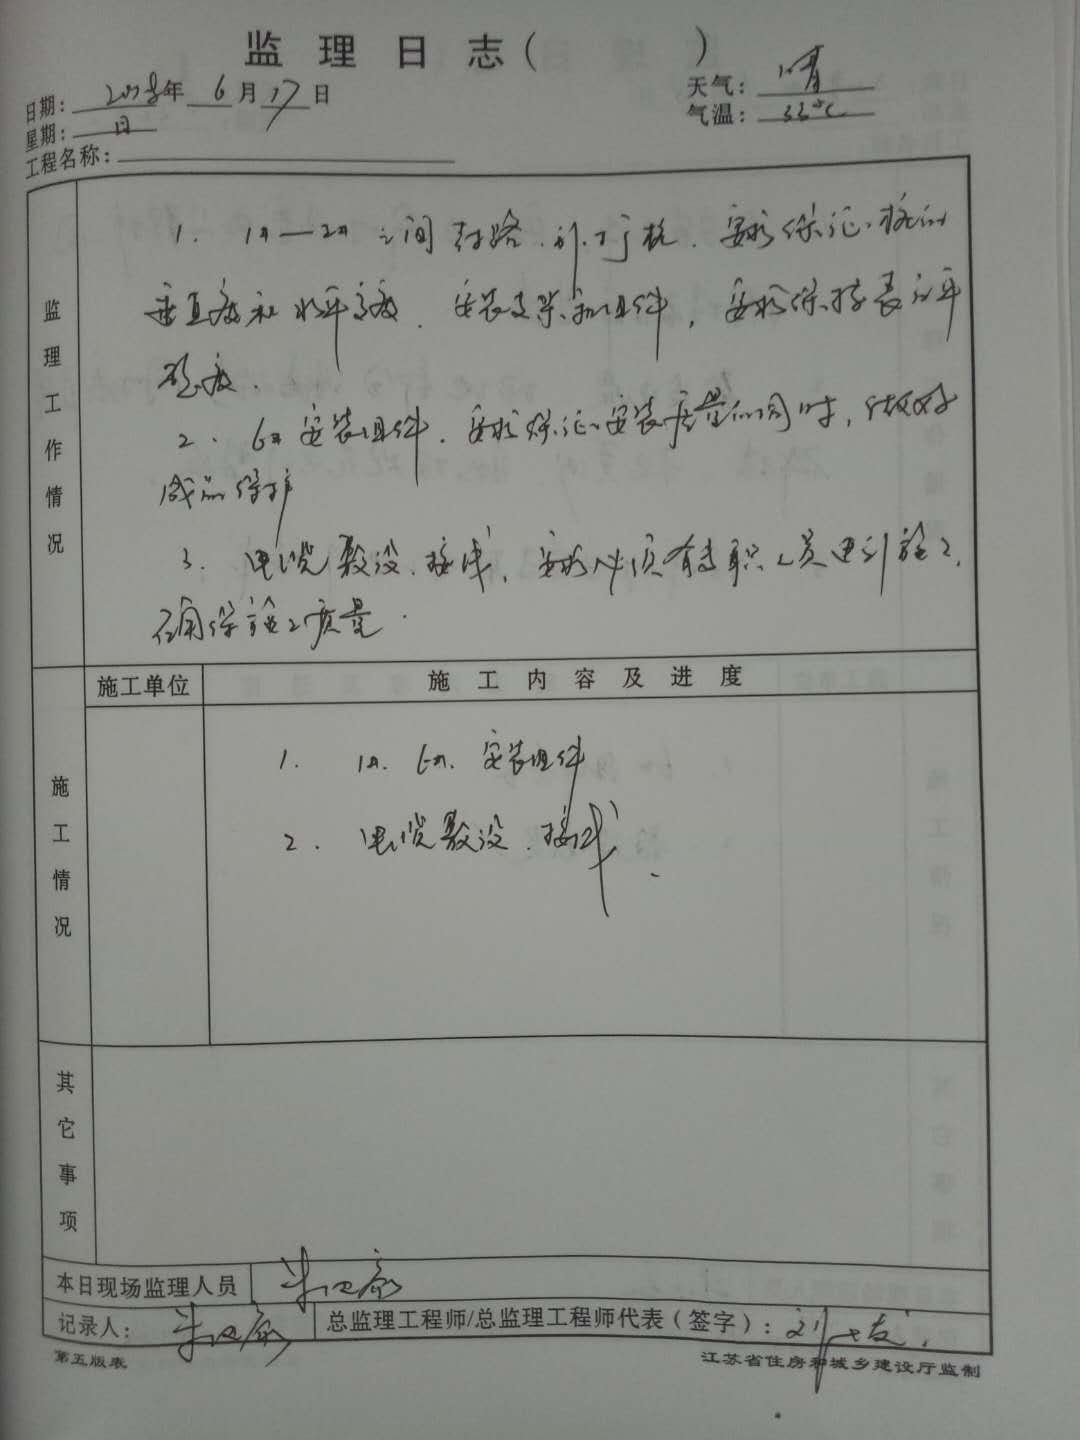 监理日志( )
日期: 2018年 6月 17日
天气: 晴
星期: 日
气温: 33℃
工程名称:
监理工作情况
1. 1#—2#之间 路、补打桩,要求保证桩的
垂直度和水平高度,安装支架和组件,要求保持表面平
整度.
2. 6#安装组件,要求保证安装质量的同时,做好
成品保护
3. 电缆敷设、接线,要求必须有专职人员进行施工,
确保施工质量.
施工情况
施工单位
施工内容及进度
1. 1#、6#、安装组件
2. 电缆敷设、接线.
其它事项
本日现场监理人员
记录人:
总监理工程师/总监理工程师代表(签字): 刘
第五版表
江苏省住房和城乡建设厅监制